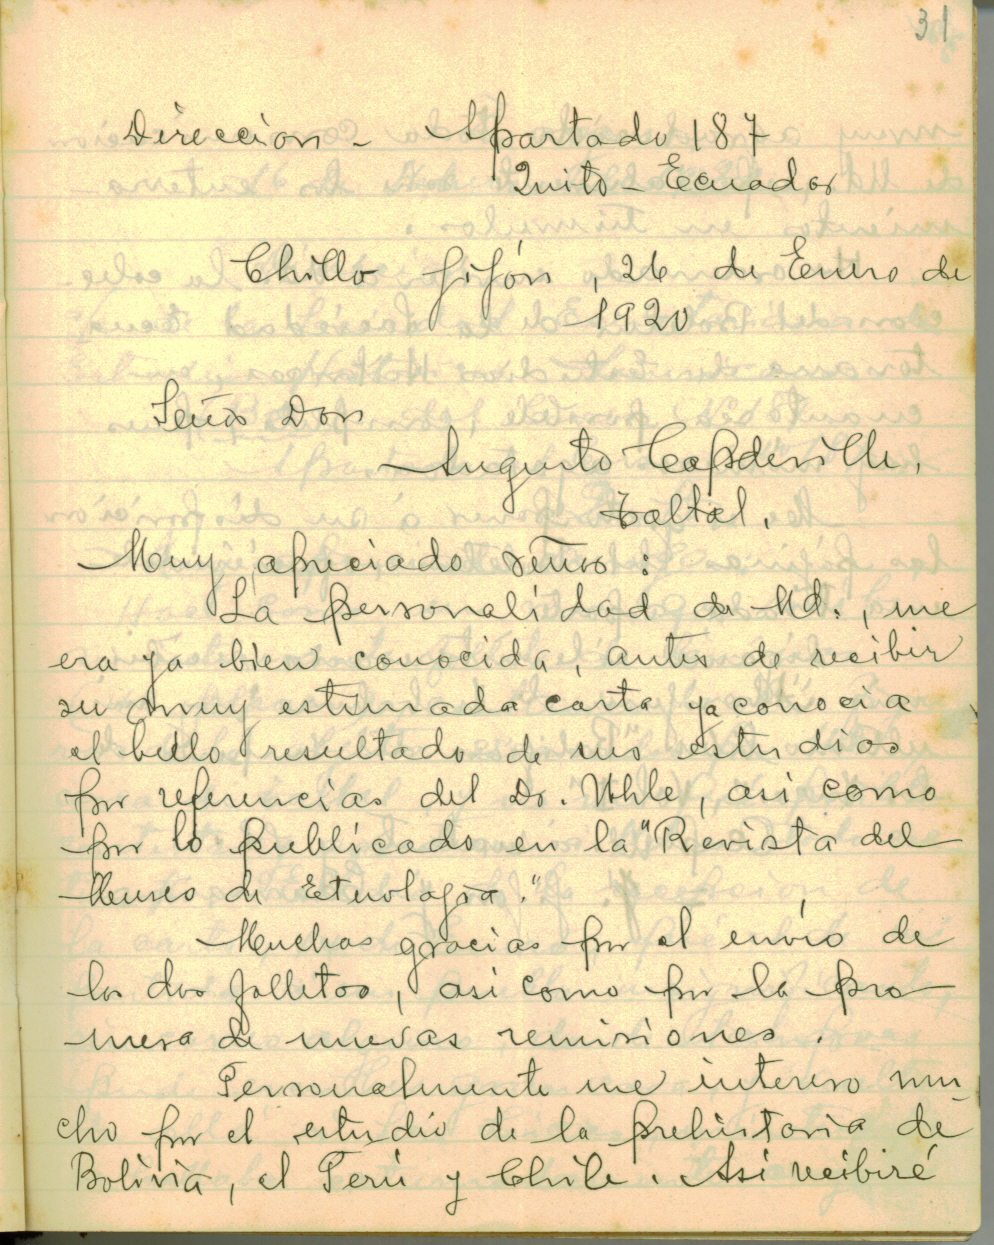 31
Direccion - Apartado 187
Quito - Ecuador
Chillo Jijón, 26 de Enero de
1920
Señor Don
Augusto Capdeville,
Taltal.
Muy apreciado señor:
La personalidad de Ud., me
era ya bien conocida, antes de recibir
su muy estimada carta ya conocia
el bello resultado de sus estudios
por referencias del Dr. Uhle, asi como
por lo publicado en la "Revista del
Museo de Etnología."
Muchas gracias por el envio de
los dos folletos, asi como por la pro
mesa de nuevas remisiones.
Personalmente me intereso mu-
cho por el estudio de la prehistoria de
Bolivia, el Perú y Chile. Asi recibiré